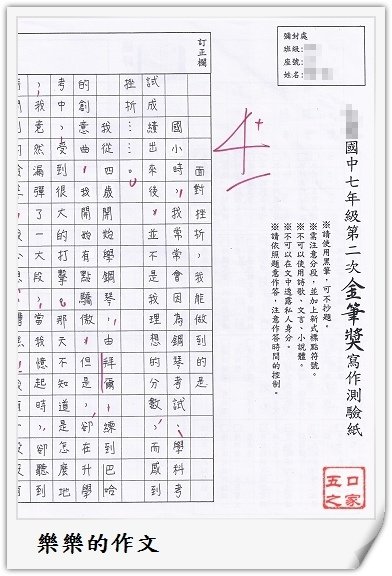 彌封處
班級:
座號:
姓名:
國中七年級第二次金筆獎寫作測驗紙
※請使用黑筆，可不抄題。
※需注意分段，並加上新式標點符號。
※不可以使用詩歌、文言、小說體。
※不可以在文中透露私人身分。
※請依照題意作答，注意作答時間的控制。
五口之家
4+
訂正欄
面對挫折，我能做到的是
國小時，我常常會因為鋼琴考試、學科考
試成績出來後，並不是我理想的分數，而感到
挫折……。
我從四歲開始學鋼琴，由拜爾，練到巴哈
的創意曲，開始有點驕傲。但是，卻在升學
考中，受到很大的打擊。那天不知道是怎麼地
，我竟然漏彈了一大段，當我憶起時，卻聽到
樂樂的作文